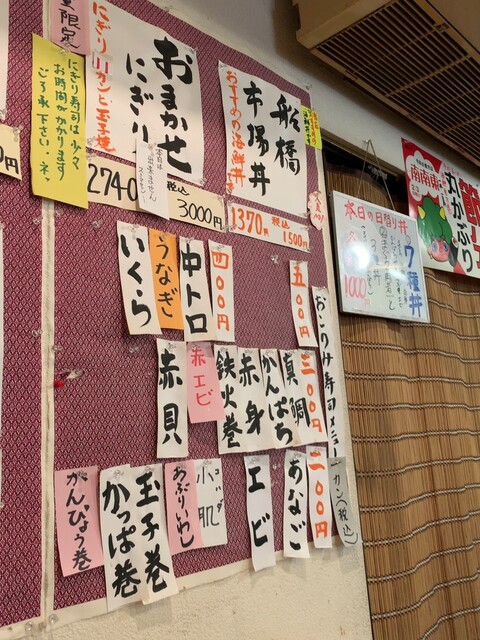 量限定
にぎり寿司は少々
お時間がかかります
ご了承下さい。
おまかせ
にぎり
にぎり11カンと玉子焼
2740
税込
3000円
本日は
出来ません
船橋
市場丼
おすすめの海鮮丼
1370円
税込
1500円
本日の日替り丼
7種丼
1000円
南南東
節分
丸かぶり
おこのみ寿司メニュー
一カン(税込)
五〇〇円
四〇〇円
中トロ
うなぎ
いくら
三〇〇円
真鯛
かんぱち
赤身
鉄火巻
赤エビ
赤貝
二〇〇円
あなご
エビ
小肌
コハダ
あぶりいわし
玉子巻
かっぱ巻
かんぴょう巻